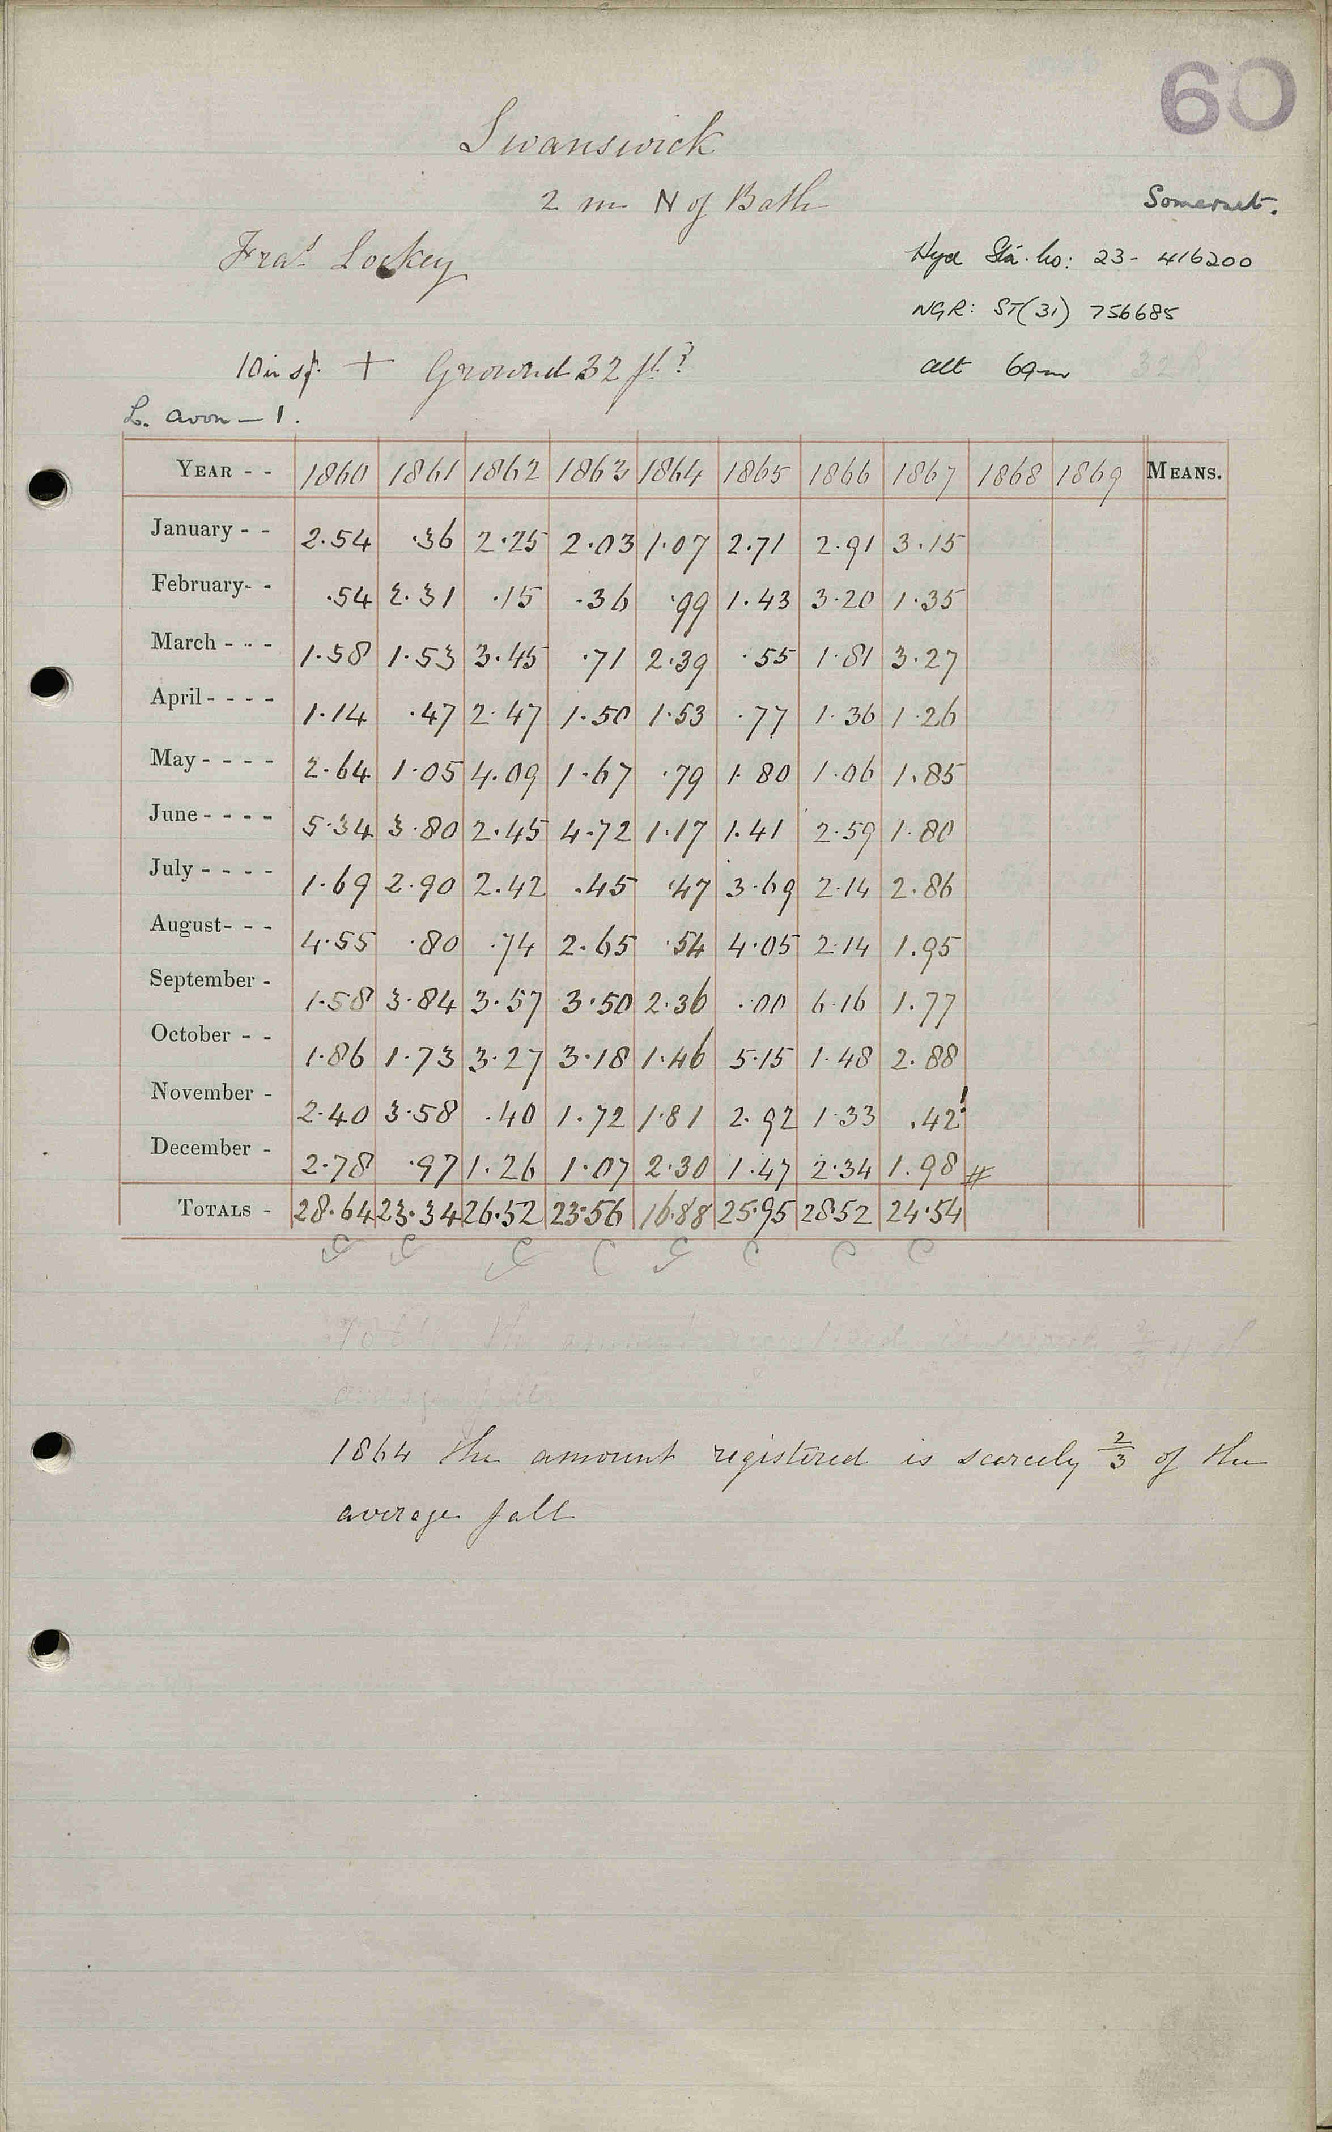 60
Swanswick
2 m N of Bath
Somerset.
Fras Lockey
Hyd Sta. No: 23- 416200
NGR: ST(31) 756685
10 in sq. + Ground 32 ft?
alt 69m
32 ft
L. avon - 1.
YEAR - - 1860 1861 1862 1863 1864 1865 1866 1867 1868 1869 MEANS.
January - - 2.54 .36 2.25 2.03 1.07 2.71 2.91 3.15
February- - .54 2.31 .15 .36 .99 1.43 3.20 1.35
March - - - 1.58 1.53 3.45 .71 2.39 .55 1.81 3.27
April - - - - 1.14 .47 2.47 1.50 1.53 .77 1.36 1.26
May - - - - 2.64 1.05 4.09 1.67 .79 1.80 1.06 1.85
June - - - - 5.34 3.80 2.45 4.72 1.17 1.41 2.59 1.80
July - - - - 1.69 2.90 2.42 .45 .47 3.69 2.14 2.86
August- - - 4.55 .80 .74 2.65 .54 4.05 2.14 1.95
September - 1.58 3.84 3.57 3.50 2.36 .00 6.16 1.77
October - - 1.86 1.73 3.27 3.18 1.46 5.15 1.48 2.88
November - 2.40 3.58 .40 1.72 1.81 2.92 1.33 .42!
December - 2.78 .97 1.26 1.07 2.30 1.47 2.34 1.98 #
TOTALS - 28.64 23.34 26.52 23.56 16.88 25.95 28.52 24.54
C C C C C C C C
1864 the amount registered is scarcely 2/3 of the
average fall